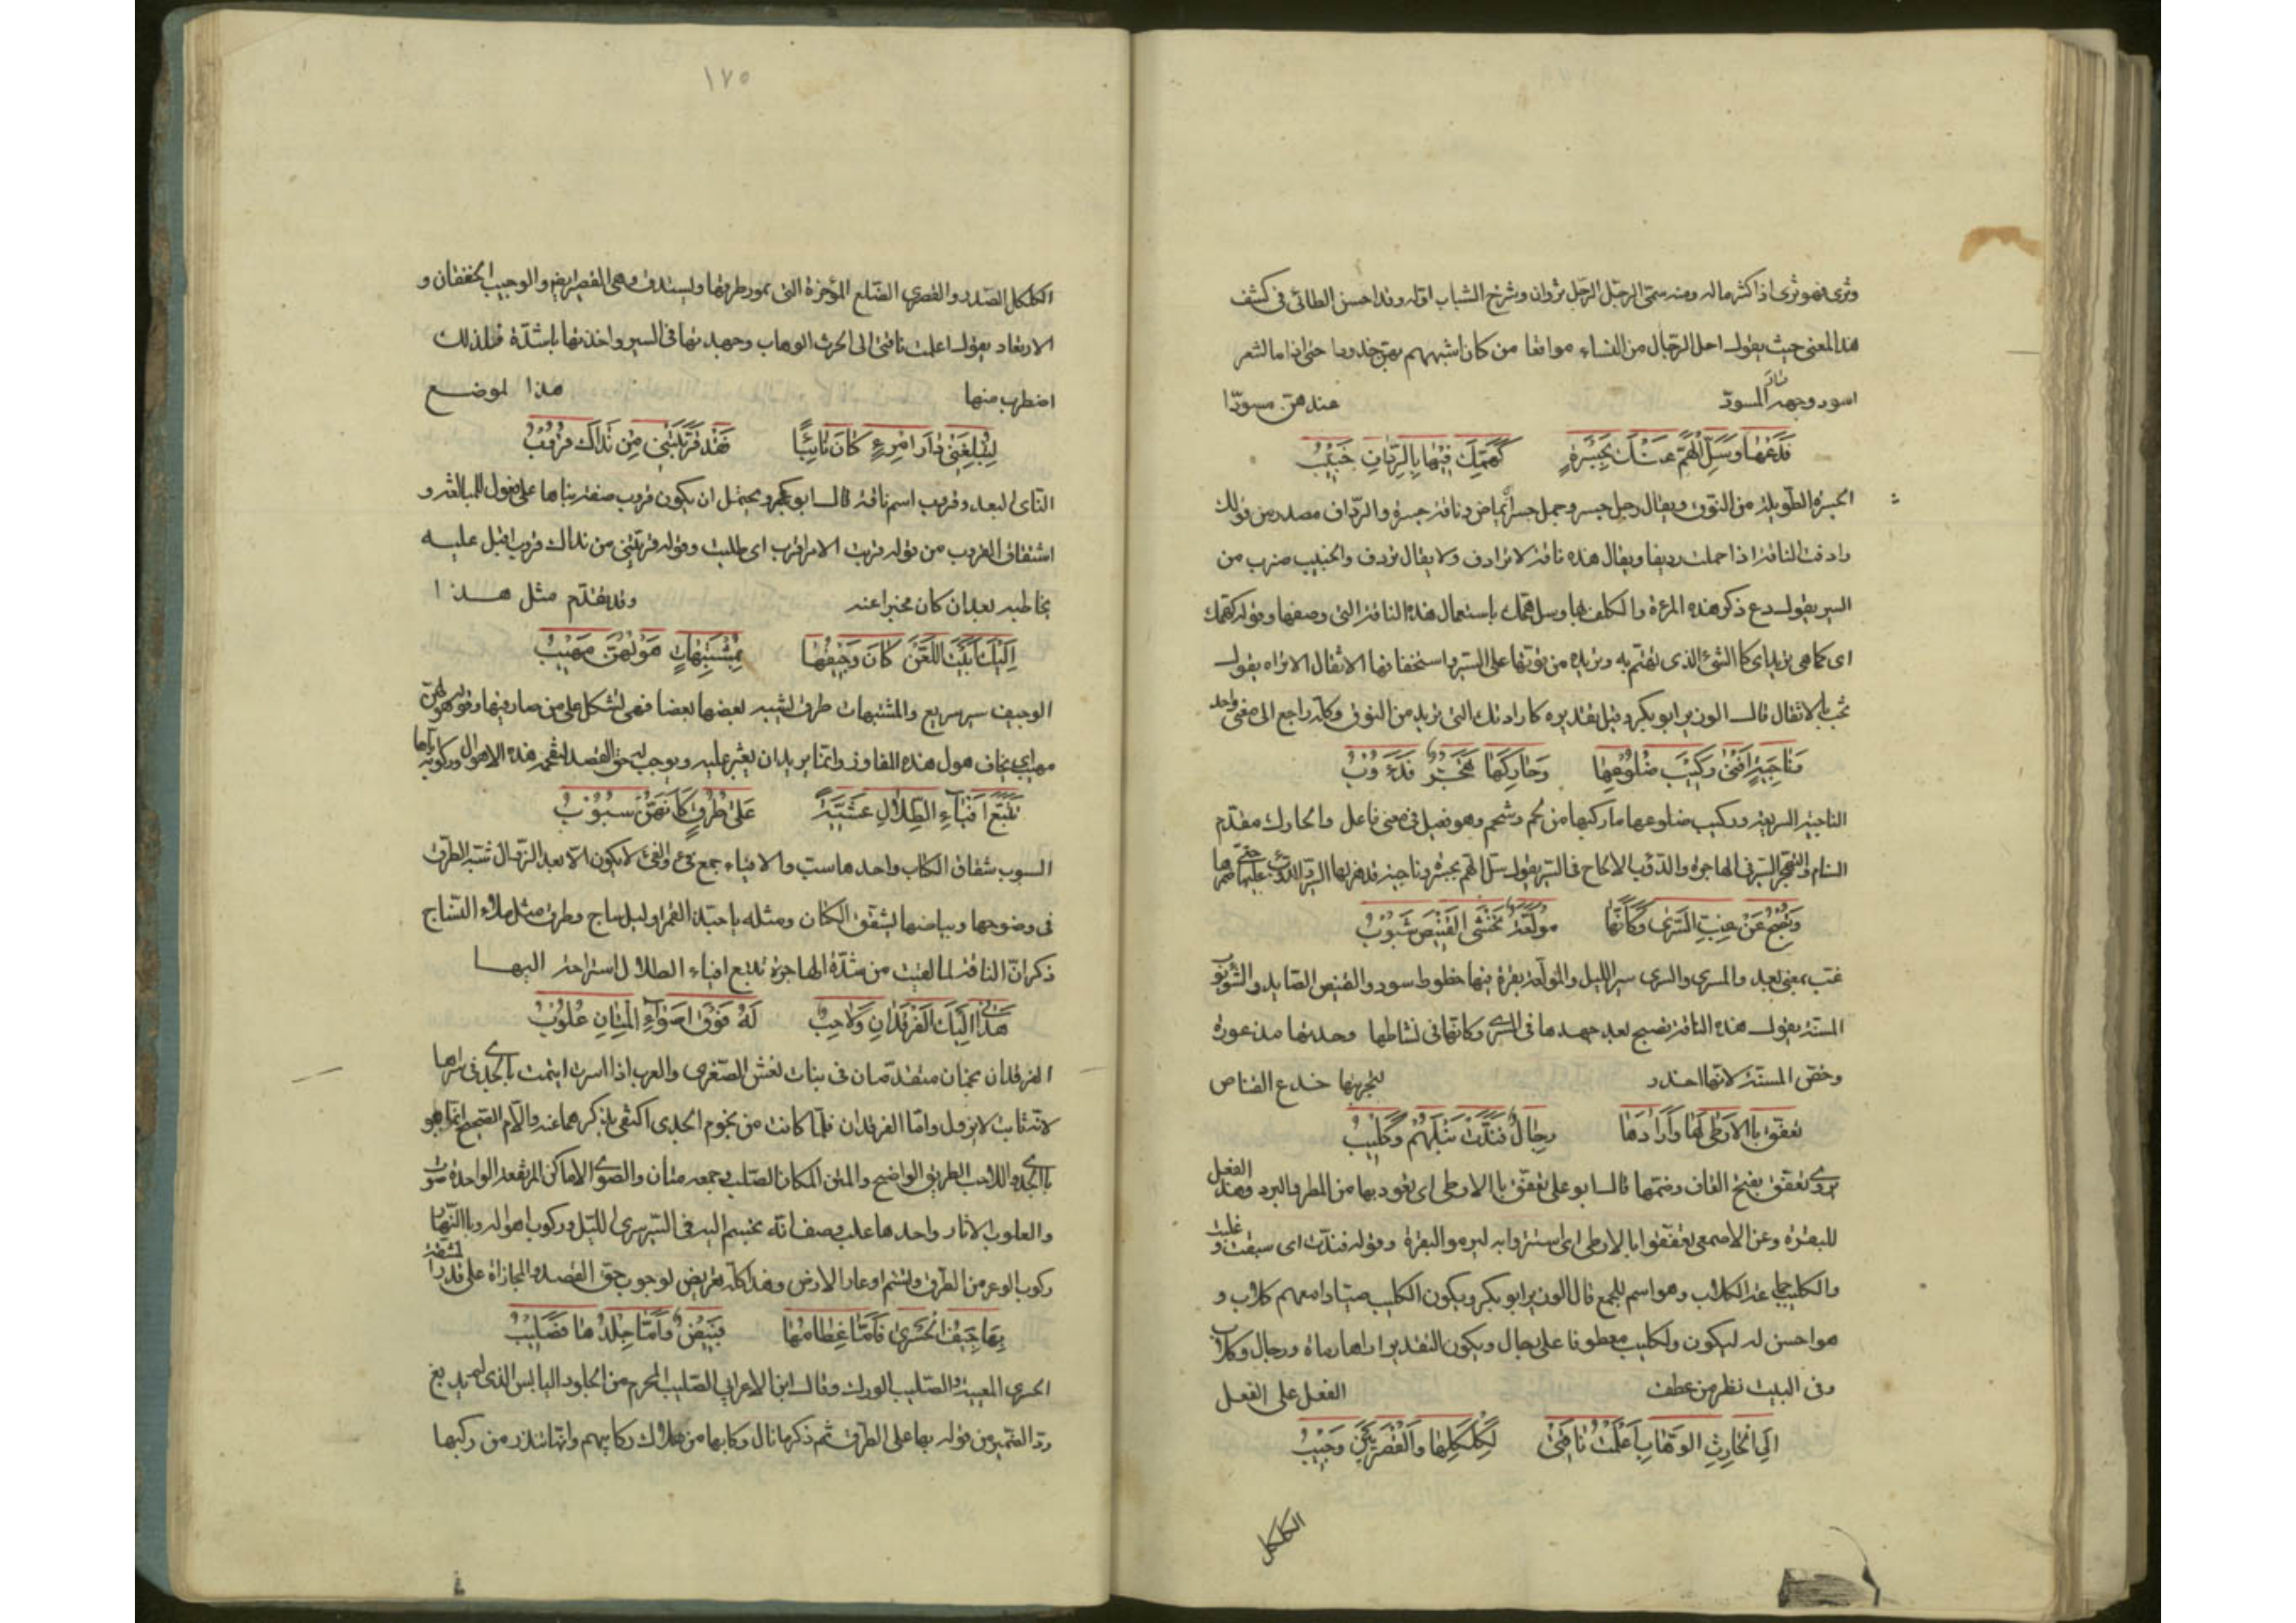 وثرى فهو ثرى اذا كثر ماله ومنه سمّى الرجل الرجل ثروان وشرخ الشباب اوله وقد احسن الطائى فى كشف
هذا المعنى حيث يقول احلى الرجال من النساء مواقعا من كان اشبههم بهن خدودا حتى اذا ما الشعر
اسود وجهه المسودّ عندهن مسودّا
فَدَعْهَا وَسَلِّ الْهَمَّ عَنْكَ بِجَسْرَةٍ كَهَمِّكَ فِيْهَا بِالرِّدَافِ خَبِيْبُ
الجسرة الطويلة من النوق ويقال رجل جسر وجمل جسر اى ماض وناقة جسرة والرداف مصدر من قولك
رادفت الناقة اذا حملت رديفا ويقال هذه ناقة لا ترادف ولا يقال تردف والخبيب ضرب من
السير يقول دع ذكر هذه المرءة والكلف بها وسل همّك باستعمال هذه الناقة التى وصفها وقوله كهمك
اى كما هى تريد اى كا الشئ الذى تهتم به وتريده من قوتها على السير واستخفافها الاثقال الا تراه يقول
تخب با لاثقال قال الوزير ابو بكر وقيل تقديره كارادتك التى تريد من النوق وكله راجع الى معنى واحد
وَنَاجِيَةٍ اَفْنٰى رَكِيْبَ ضُلُوْعِهَا وَحَارِكَهَا تَهَجُّرٌ فَدُءُوْبُ
الناجية السريعة وركيب ضلوعها ما ركبها من لحم وشحم وهو فعيل فى معنى فاعل والحارك مقدم
السنام والتهجر السير فى الهاجرة والدؤب الالحاح فى السير يقول سل الهم بجسرة وناجية قد هزلها السير والدؤب عليها حتى
وَتُصْبِحُ عَنْ غِبِّ السُّرٰى وَكَأَنَّهَا مُوَلَّعَةٌ تَخْشَى الْقَنِيْصَ شَبُوْبُ
غب بمعنى بعد والمسرى والسرى سير الليل والمولعة بقرة فيها خطوط سود والقنيص الصايد والشبوب
المسنة يقول هذه الناقة تصبح بعد جهدها فى السرى وكانها فى نشاطها وحدتها مذعورة
وخص المسنة لانها احذر لتجربتها خدع القناص
تَعَفَّقَ بِاالْاَرْطٰى لَهَا وَاَرَادَهَا رِجَالٌ فَبَذَّتْ نَبْلَهُمْ وَكَلِيْبُ
يروى تعفق بفتح القاف وضمها قال ابو على تعفق با الارطى اى تعود بها من المطر والبرد وهذا الفعل
للبقرة وعن الاصمعى تعفقوا با الارطى اى استتروا به ليرموا البقرة وقوله فبذت اى سبقت و غلبت
والكليب جماعة الكلاب وهو اسم للجمع قال الوزير ابو بكر ويكون الكليب صيادا معهم كلاب و
هو احسن له ليكون وكليب معطوفا على رجال ويكون التقدير ارادها رماة ورجال وكلاب
وفى البيت نظر من عطف الفعل على الفعل
اِلَى الْحَارِثِ الوَهَّابِ اَعْلَمْتُ نَاقَتِىْ لِكَلْكَلِهَا وَالْقُصْرَيَيْنِ وَجِيْبُ
الكلكل
١٧٥
الكلكل الصدر والقصرى الضلع المؤخرة التى تمور طرفها ويستدق وهى القصيرى ايضا والوجيب الخفقان و
الارتعاد يقول اعملت ناقتى الى الحرث الوهاب وجهدتها فى السير واخذتها باشدّه فلذلك
اضطرب منها هذا لموضع
لِتُبْلِغَنِىْ دَارَ امْرِءٍ كَانَ نَائِيًّا فَقَدْ قَرَّبَتْنِىْ مِنْ نَدَاكَ قَرُوْبُ
النائى البعيد وقروب اسم ناقته قال ابو بكر ويحتمل ان يكون قروب صفة بناها على فعول للمبالغة و
اشتقاق القروب من قوله قربت الامر اقرب اى طلبت وقوله قربتنى من نداك قروب اقبل عليه
يخاطبه بعد ان كان مخبرا عنه وقد تقدم مثل هذا
اِلَيْكَ اَبَيْتَ اللَّعْنَ كَانَ وَجِيْفُهَا بِمُشْتَبِهَاتٍ هَوْلُهُنَّ مَهِيْبُ
الوجيف سير سريع والمشتبهات طرق يشبه بعضها بعضا فهى تشكل على من صار فيها وقوله هولهن
مهيب اى يخاف هول هذه المفاوز وانما يريد ان يعتبر عليه ويوجب له حق القصد لتقحم هذه الاهوال وركوبه اياها
تَتَبَّعُ اَفْيَآءَ الظِّلَالِ عَشِيَّةً عَلٰى طُرُقٍ كَأَنَّهُنَّ سُبُوْبُ
السبوب شقاق الكتان واحدها سب والافياء جمع فئ والفئ لا يكون الا بعد الزوال شبه الطرق
فى وضوحها وبياضها بشقق الكتان ومثله يا حبّذا القمرا وليل ساج وطرق مثل ملاء النسّاج
ذكر ان الناقة لما لقيت من شدّة الهاجرة تتبع افياء الظلال استراحة اليها
هَدَانِىْ اِلَيْكَ الْفَرْقَدَانِ وَلَاحِبٌ لَهُ فَوْقَ اَصْوَآءِ الْمِتَانِ عُلُوْبُ
الفرقدان نجمان متقدمان فى بنات نعش الصغرى والعرب اذا اسرت ايتمت با لجدى فى سراها
لانه ثابت لا يزول واما الفرقدان فلما كانت من نجوم الجدى اكتفى بذكرهما عنه والا فالصحيح انما هو
با الجدى واللاحب الطريق الواضح والمتن المكان الصلب وجمعه متان والصوى الاماكن المرتفعة الواحدة صوة
والعلوب الاثار واحدها علب وصف انه تجشم اليه فى السير سرى الليل وركوب اهواله وبا النهار
ركوب الوعر من الطرق وتشمم اوعار الارض وهذا كله تعريض لوجوب حق القصد والمجازاة على قدر المشقة
بِهَا جِيَفُ الْحَسْرٰى فَاَمَّا عِظَامُهَا فَبِيْضٌ وَاَمَّا جِلْدُهَا فَصَلِيْبُ
الحسرى المعيية والصليب الودك وقال ابن الاعرابى الصليب المحرم من الجلود اليابس الذى لم يدبغ
ردّ الضمير من قوله بها على الطرق ثم ذكر ما نال ركابها من هلاك ركابهم وانها تنذر من ركبها